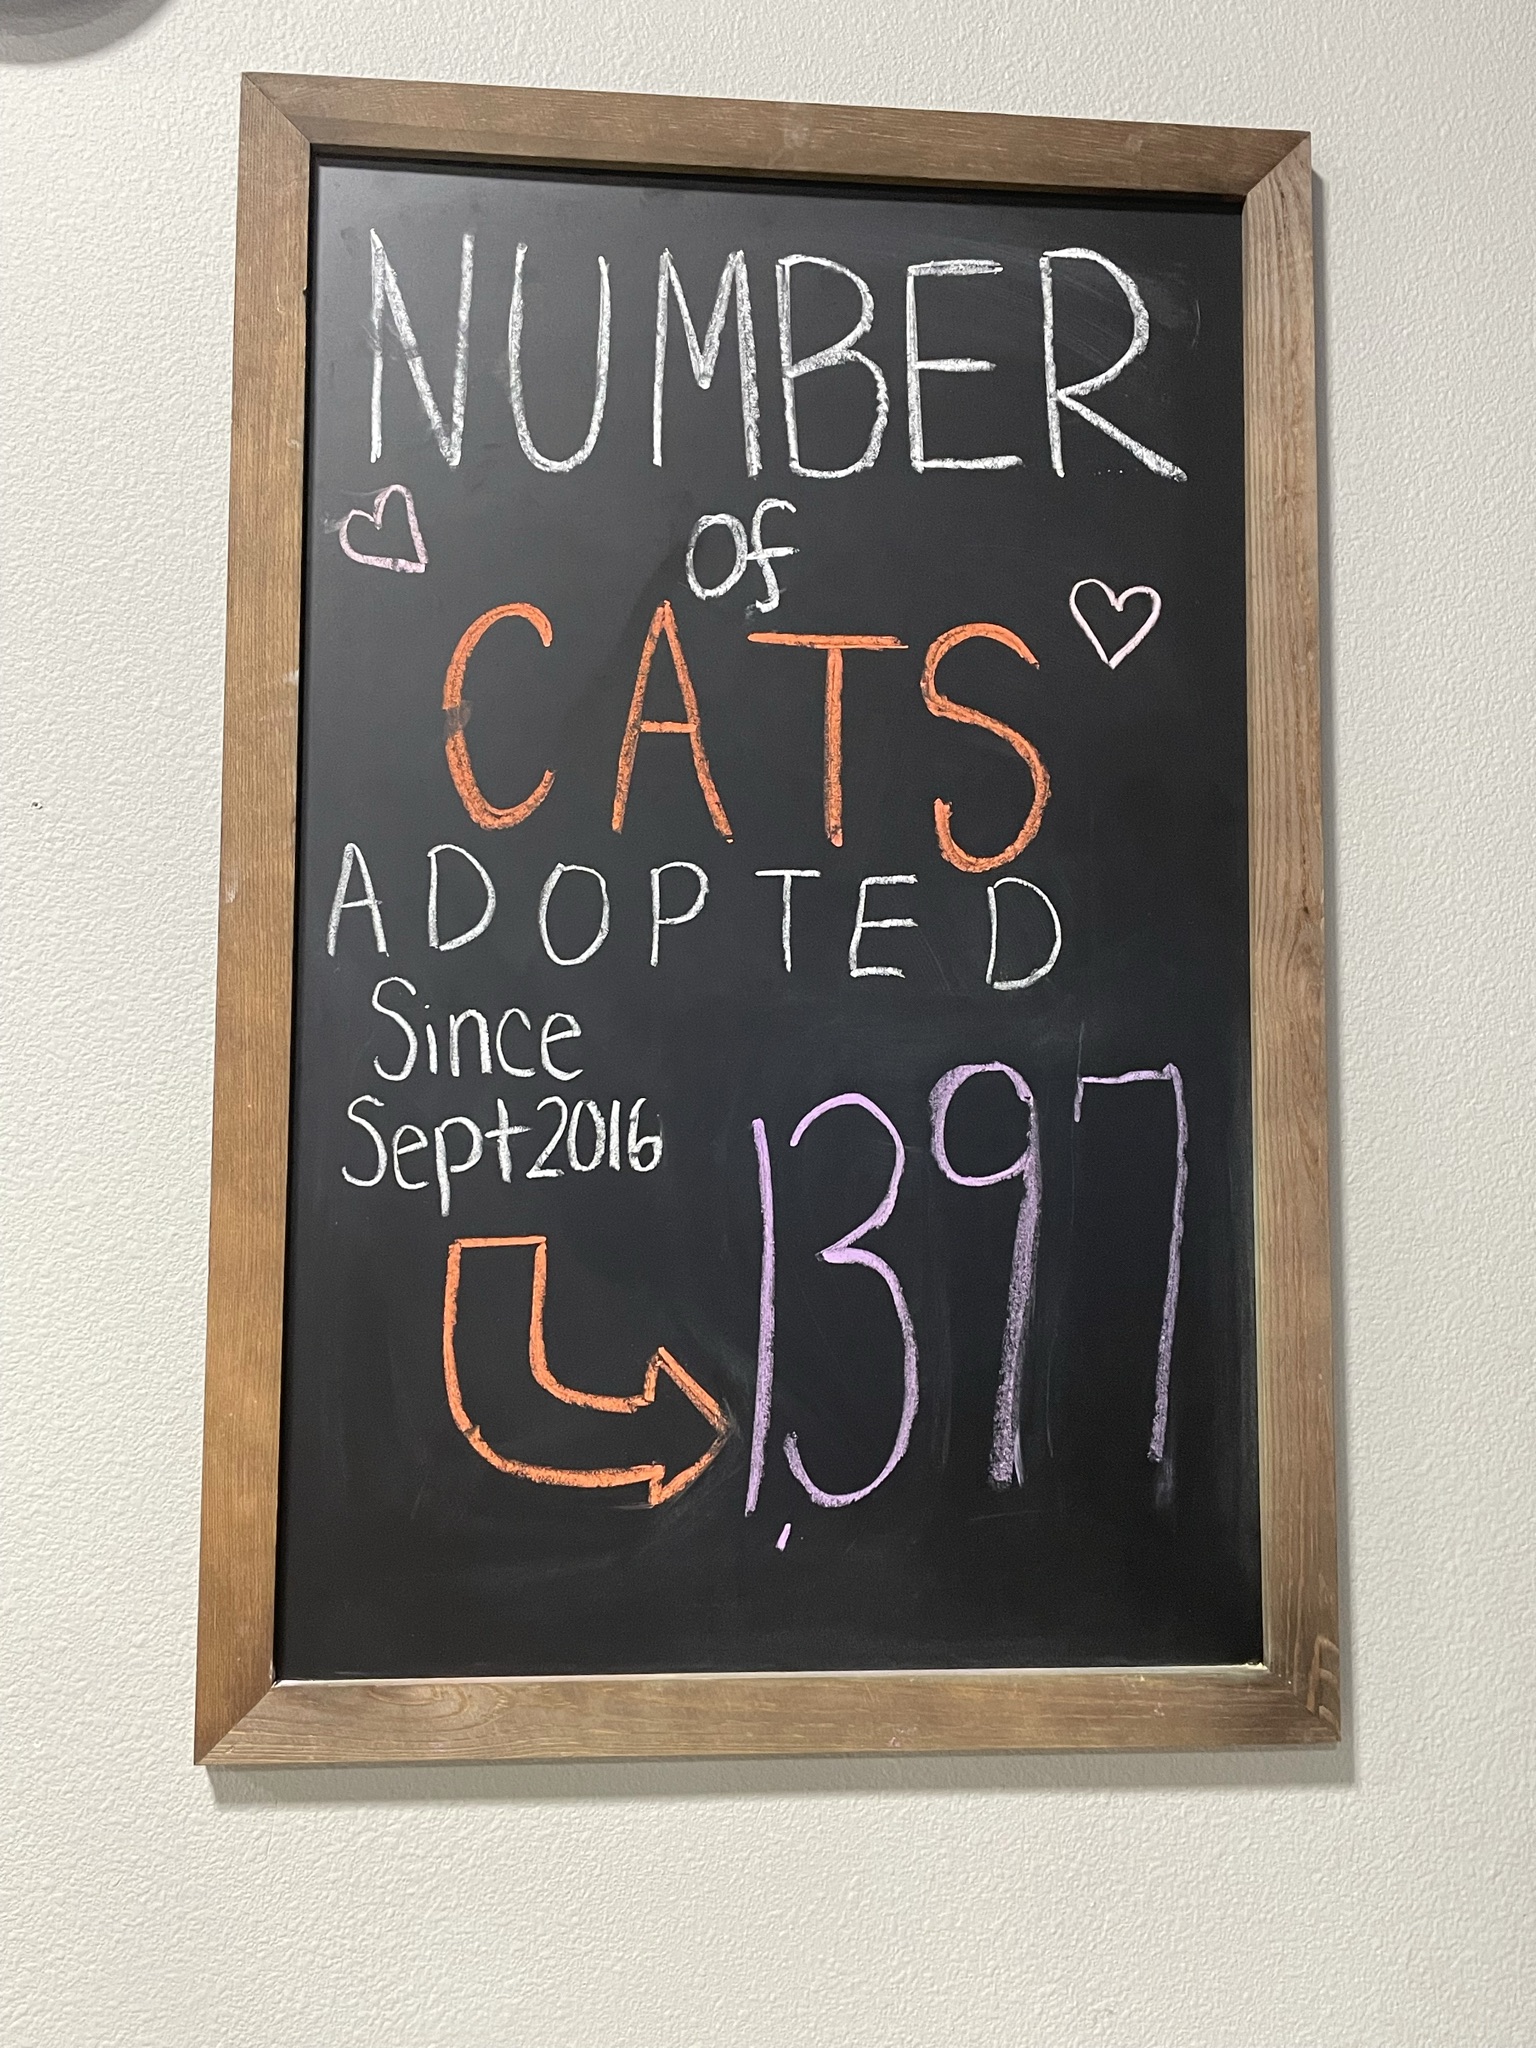 NUMBER
of
CATS
ADOPTED
Since
Sept 2016
1397